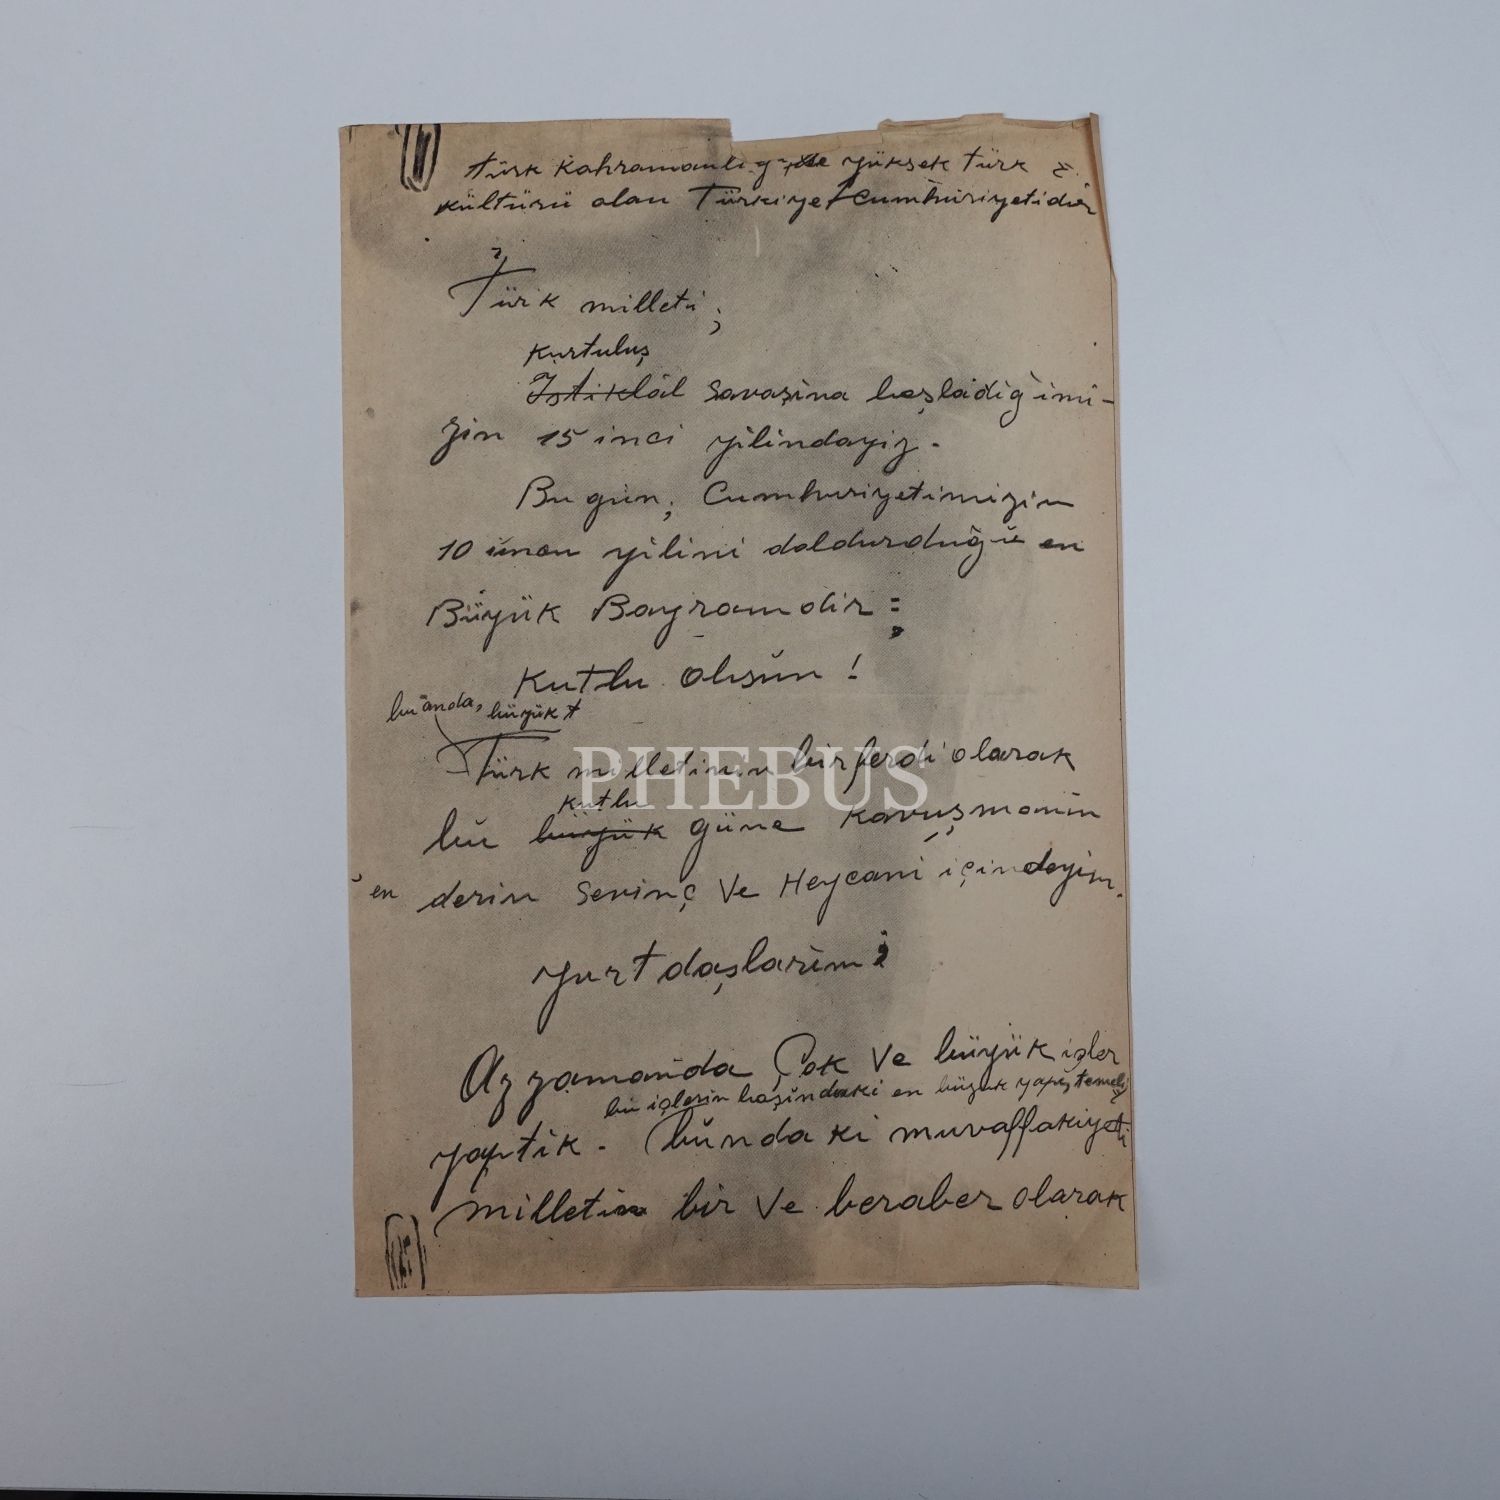 türk kahramanlığı ile yüksek türk
kültürü olan Türkiye Cumhuriyetidir
Türk milleti;
Kurtuluş
İstiklâl Savaşına başladığımı-
zin 15 inci yilindayiz.
Bu gün, Cumhuriyetimizin
10 uncu yilini doldurduğu en
Büyük Bayramdir;
Kutlu olsun!
bu anda, büyük t
Türk milletinin bir ferdi olarak
kutlu
bu büyük güne kavuşmanin
en derin Sevinç ve Heycani içindeyim.
yurtdaşlarim;
Az zamanda Çok ve büyük işler
bu işlerin başindaki en büyük yapiş temeli
yaptik. bundaki muvaffakiyeti
milletin bir ve beraber olarak
PHEBUS